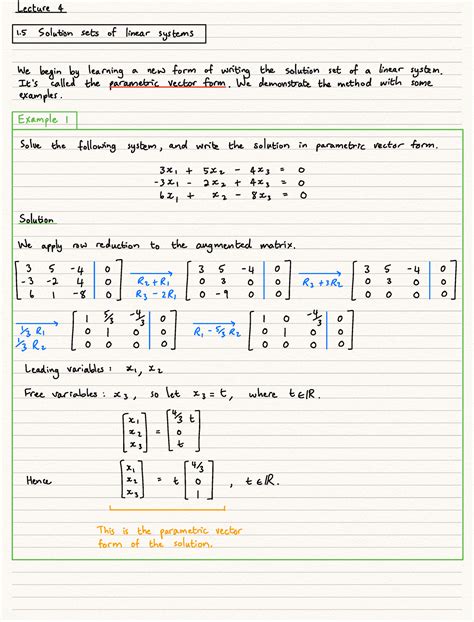 Lecture 4
1.5 Solution sets of linear systems
We begin by learning a new form of writing the solution set of a linear system.
It's called the parametric vector form. We demonstrate the method with some
examples.
Example 1
Solve the following system, and write the solution in parametric vector form.
3x₁ + 5x₂ - 4x₃ = 0
-3x₁ - 2x₂ + 4x₃ = 0
6x₁ + x₂ - 8x₃ = 0
Solution
We apply row reduction to the augmented matrix.
[3 5 -4 | 0; -3 -2 4 | 0; 6 1 -8 | 0] → R₂+R₁ R₃-2R₁ [3 5 -4 | 0; 0 3 0 | 0; 0 -9 0 | 0] → R₃+3R₂ [3 5 -4 | 0; 0 3 0 | 0; 0 0 0 | 0]
→ 1/3 R₁ 1/3 R₂ [1 5/3 -4/3 | 0; 0 1 0 | 0; 0 0 0 | 0] → R₁-5/3 R₂ [1 0 -4/3 | 0; 0 1 0 | 0; 0 0 0 | 0]
Leading variables: x₁, x₂
Free variables: x₃, so let x₃=t, where t∈ℝ.
[x₁; x₂; x₃] = [4/3 t; 0; t]
Hence [x₁; x₂; x₃] = t [4/3; 0; 1], t∈ℝ.
This is the parametric vector
form of the solution.